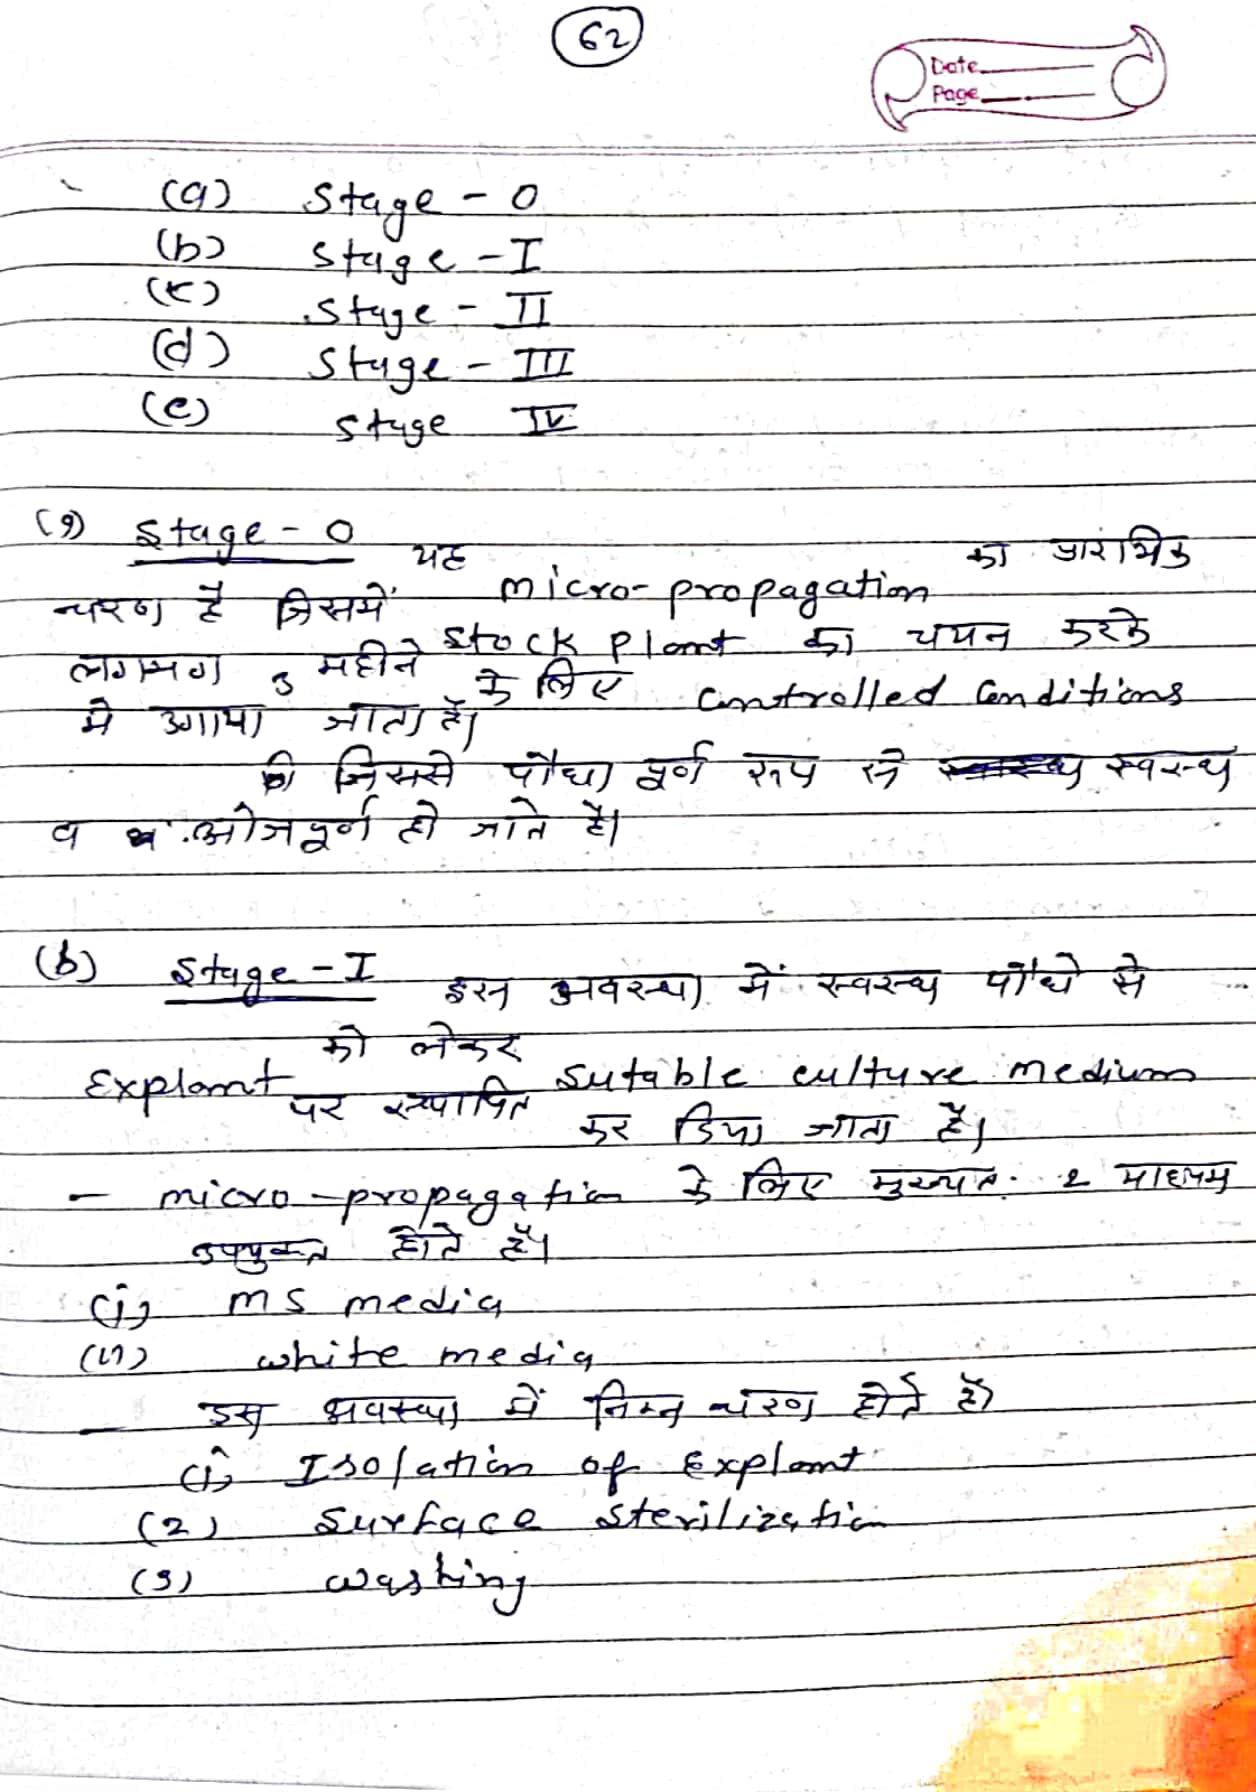 62
Date
Page
(a) Stage - 0
(b) Stage - I
(c) Stage - II
(d) Stage - III
(e) Stage IV
(a) Stage - 0 यह micro-propagation का प्रारंभिक
चरण है जिसमें stock plant का चयन करके
लगभग 3 महीने के लिए Controlled Conditions
मे उगाया जाता है।
जिससे पौधा पूर्ण रूप से स्वस्थ
व ओजपूर्ण हो जाते है।
(b) Stage - I इस अवस्था में स्वस्थ पौधे से
Explant को लेकर Sutable culture medium
पर स्थापित कर दिया जाता है।
- micro-propagation के लिए मुख्यत: 2 माध्यम
उपयुक्त होते है।
(i) MS media
(ii) white media
_ इस अवस्था में निम्न चरण होते है
(i) Isolation of Explant
(2) Surface sterilization
(3) washing